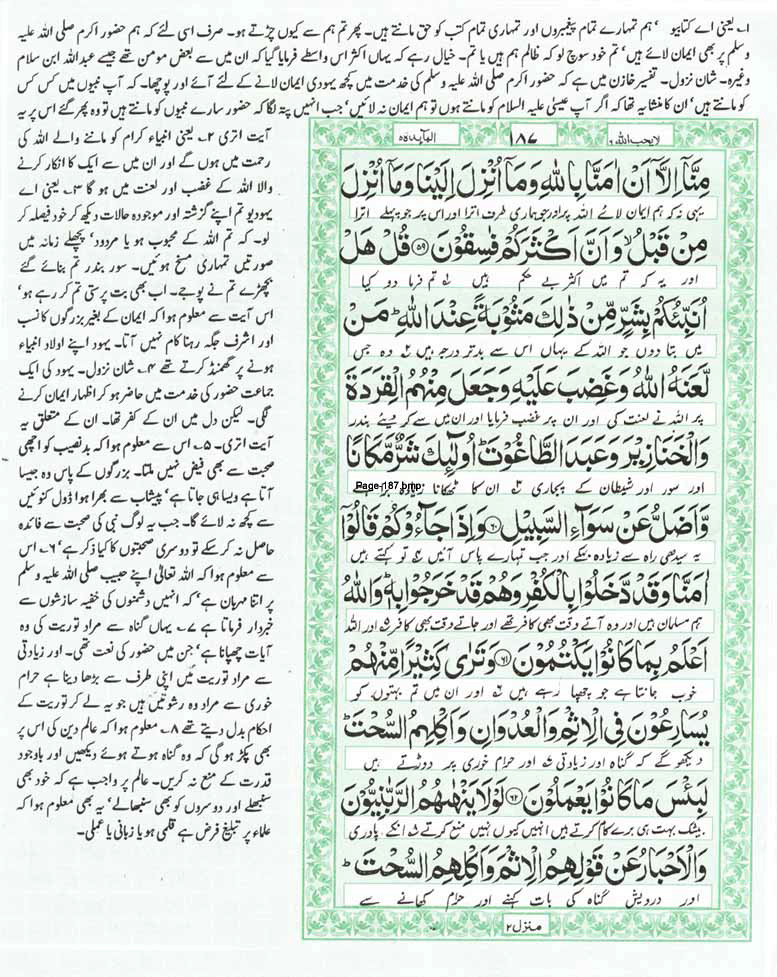 ۱۔ یعنی اے کتابیو ' ہم تمہارے تمام پیغمبروں اور تمہاری تمام کتب کو حق مانتے ہیں۔ پھر تم ہم سے کیوں چڑتے ہو۔ صرف اسی لئے کہ ہم حضور اکرم صلی اللہ علیہ
وسلم پر بھی ایمان لائے ہیں' تم خود سوچ لو کہ ظالم ہم ہیں یا تم۔ خیال رہے کہ یہاں اکثر اس واسطے فرمایا گیا کہ ان میں سے بعض مومن تھے جیسے عبداللہ ابن سلام
وغیرہ۔ شان نزول۔ تفسیر خازن میں ہے کہ حضور اکرم صلی اللہ علیہ وسلم کی خدمت میں کچھ یہودی ایمان لانے کے لئے آئے اور پوچھا۔ کہ آپ نبیوں میں کس کس
کو مانتے ہیں' ان کا منشا یہ تھا کہ اگر آپ عیسیٰ علیہ السلام کو مانتے ہوں تو ہم ایمان نہ لائیں' جب انہیں پتہ لگا کہ حضور سارے نبیوں کو مانتے ہیں تو وہ پھر گئے اس پر یہ
لا یحب اللہ ۶ ۱۸۷ المآیدہ ۵
مِنَّاۤ اِلَّاۤ اَنْ اٰمَنَّا بِاللّٰهِ وَمَاۤ اُنْزِلَ اِلَیْنَا وَمَاۤ اُنْزِلَ
یہی نہ کہ ہم ایمان لائے اللہ پر اور جو ہماری طرف اترا اور اس پر جو پہلے اترا
مِنْ قَبْلُ ۙ وَاَنَّ اَكْثَرَكُمْ فٰسِقُوْنَ ﴿۵۹﴾ قُلْ هَلْ
اور یہ کہ تم میں اکثر بے حکم ہیں تم فرما دو کیا
اُنَبِّئُكُمْ بِشَرٍّ مِّنْ ذٰلِكَ مَثُوْبَةً عِنْدَ اللّٰهِ ؕ مَنْ
میں بتا دوں جو اللہ کے یہاں اس سے بدتر درجہ میں ہیں وہ جس
لَّعَنَهُ اللّٰهُ وَغَضِبَ عَلَیْهِ وَجَعَلَ مِنْهُمُ الْقِرَدَةَ
پر اللہ نے لعنت کی اور ان پر غضب فرمایا اور ان میں سے کر دیئے بندر
وَالْخَنَازِیْرَ وَعَبَدَ الطَّاغُوْتَ ؕ اُولٰٓئِكَ شَرٌّ مَّكَانًا
اور سور اور شیطان کے پجاری ان کا ٹھکانا زیادہ
Page-187.bmp
وَّاَضَلُّ عَنْ سَوَآءِ السَّبِیْلِ ﴿۶۰﴾ وَاِذَا جَآءُوْكُمْ قَالُوْۤا
یہ سیدھی راہ سے زیادہ بہکے اور جب تمہارے پاس آئیں تو کہتے ہیں
اٰمَنَّا وَقَدْ دَّخَلُوْا بِالْكُفْرِ وَهُمْ قَدْ خَرَجُوْا بِهٖ ؕ وَاللّٰهُ
ہم مسلمان ہیں اور وہ آتے وقت بھی کافر تھے اور جاتے وقت بھی کافر اور اللہ
اَعْلَمُ بِمَا كَانُوْا یَكْتُمُوْنَ ﴿۶۱﴾ وَتَرٰی كَثِیْرًا مِّنْهُمْ
خوب جانتا ہے جو چھپا رہے ہیں اور ان میں تم بہتوں کو
یُسَارِعُوْنَ فِی الْاِثْمِ وَالْعُدْوَانِ وَاَكْلِهِمُ السُّحْتَ ؕ
دیکھو گے کہ گناہ اور زیادتی اور حرام خوری پر دوڑتے ہیں
لَبِئْسَ مَا كَانُوْا یَعْمَلُوْنَ ﴿۶۲﴾ لَوْلَا یَنْهٰىهُمُ الرَّبّٰنِیُّوْنَ
بیشک بہت ہی برے کام کرتے ہیں انہیں کیوں نہیں منع کرتے انکے پادری
وَالْاَحْبَارُ عَنْ قَوْلِهِمُ الْاِثْمَ وَاَكْلِهِمُ السُّحْتَ ؕ
اور درویش گناہ کی بات کہنے اور حرام کھانے سے
منزل ۲
آیت اتری ۲۔ یعنی انبیاء کرام کو ماننے والے اللہ کی
رحمت میں ہوں گے اور ان میں سے ایک کا انکار کرنے
والا اللہ کے غضب اور لعنت میں ہو گا ۳۔ یعنی اے
یہودیو تم اپنے گزشتہ اور موجودہ حالات دیکھ کر خود فیصلہ کر
لو۔ کہ تم اللہ کے محبوب ہو یا مردود' پچھلے زمانہ میں
صورتیں تمہاری مسخ ہوئیں۔ سور بندر تم بنائے گئے
بچھڑے تم نے پوجے۔ اب بھی بت پرستی تم کر رہے ہو'
اس آیت سے معلوم ہوا کہ ایمان کے بغیر بزرگوں کا نسب
اور اشرف جگہ رہنا کام نہیں آتا۔ یہود اپنے اولاد انبیاء
ہونے پر گھمنڈ کرتے تھے ۴۔ شان نزول۔ یہود کی ایک
جماعت حضور کی خدمت میں حاضر ہو کر اظہار ایمان کرنے
لگی۔ لیکن دل میں ان کے کفر تھا۔ ان کے متعلق یہ
آیت اتری۔ ۵۔ اس سے معلوم ہوا کہ بدنصیب کو اچھی
صحبت سے بھی فیض نہیں ملتا۔ بزرگوں کے پاس وہ جیسا
آتا ہے ویسا ہی جاتا ہے' پیشاب سے بھرا ہوا ڈول کنوئیں
سے کچھ نہ لائے گا۔ جب یہ لوگ نبی کی صحبت سے فائدہ
حاصل نہ کر سکے تو دوسری صحبتوں کا کیا ذکر ہے' ۶۔ اس
سے معلوم ہوا کہ اللہ تعالیٰ اپنے حبیب صلی اللہ علیہ وسلم
پر اتنا مہربان ہے' کہ انہیں دشمنوں کی خفیہ سازشوں سے
خبردار فرماتا ہے ۷۔ یہاں گناہ سے مراد توریت کی وہ
آیات چھپانا ہے' جن میں حضور کی نعت تھی۔ اور زیادتی
سے مراد توریت میں اپنی طرف سے بڑھا دینا ہے حرام
خوری سے مراد وہ رشوتیں ہیں جو یہ لے کر توریت کے
احکام بدل دیتے تھے ۸۔ معلوم ہوا کہ عالم دین کی اس پر
بھی پکڑ ہو گی کہ وہ گناہ ہوتے ہوئے دیکھیں اور باوجود
قدرت کے منع نہ کریں۔ عالم پر واجب ہے کہ خود بھی
سنبھلے اور دوسروں کو بھی سنبھالے' یہ بھی معلوم ہوا کہ
علماء پر تبلیغ فرض ہے قلمی ہو یا زبانی یا عملی۔